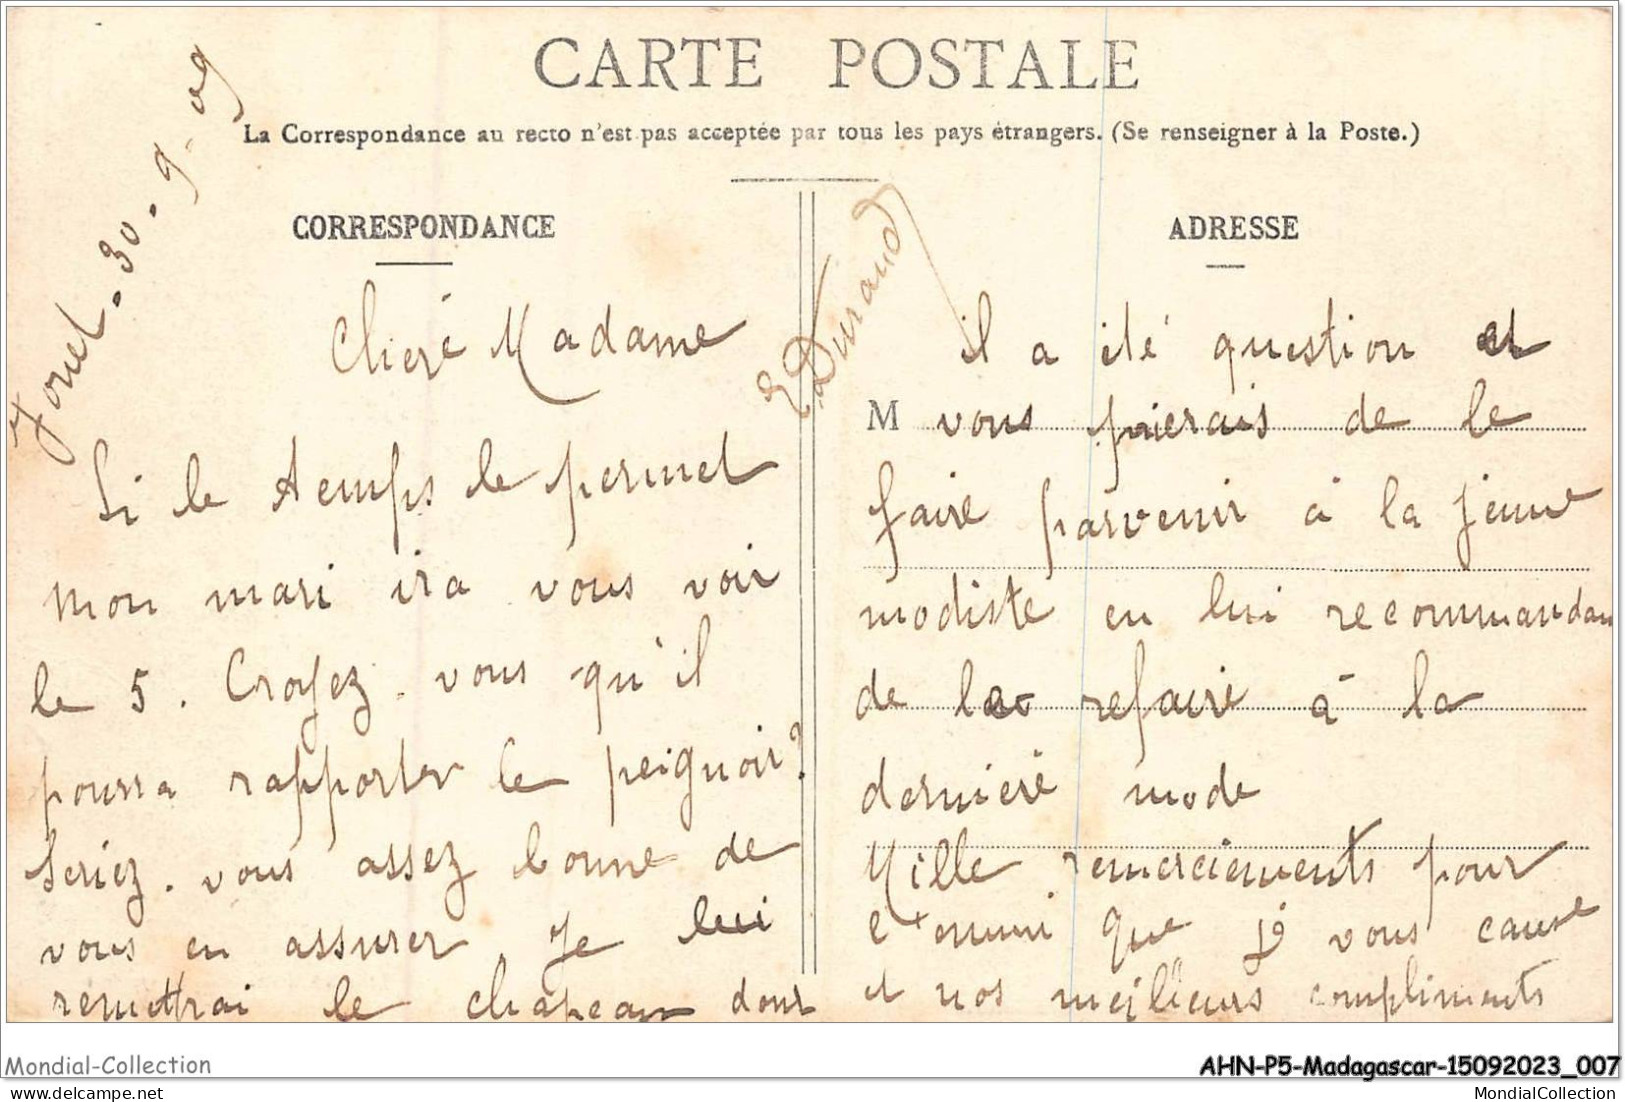 CARTE POSTALE
La Correspondance au recto n'est pas acceptée par tous les pays étrangers. (Se renseigner à la Poste.)
CORRESPONDANCE
30.9-09
Chère Madame
Si le temps le permet
mon mari ira vous voir
le 5. Croyez-vous qu'il
pourra rapporter le peignoir?
Seriez-vous assez bonne de
vous en assurer. Je lui
remettrai le chapeau dont
ADRESSE
il a été question et
M vous prierais de le
faire parvenir à la jeune
modiste en lui recommandan
de le refaire à la
dernière mode
Mille remerciements pour
l'ennui que je vous cause
et nos meilleurs compliments
E. Durand
Mondial-Collection
AHN-P5-Madagascar-15092023_007
www.delcampe.net
MondialCollection